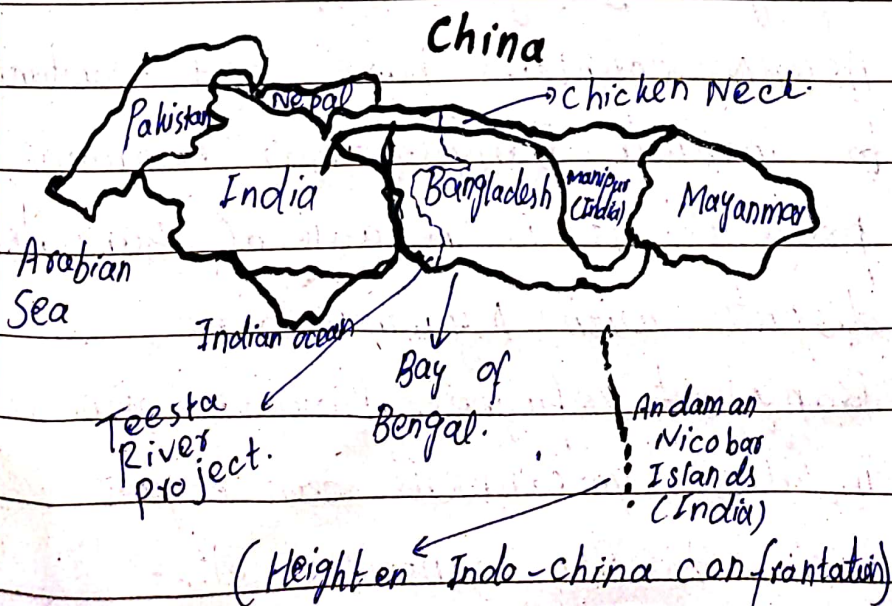 China
Chicken Neck.
Nepal
Pakistan
India
Bangladesh
Manipur
(India)
Mayanmar
Arabian
Sea
Indian ocean
Bay of
Bengal.
Teesta
River
Project.
Andaman
Nicobar
Islands
(India)
(Heighten Indo-China confrontation)